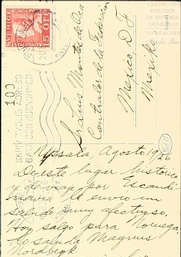 SVERIGE
15 ÖRE
Sr Luis Montes de Oca
Contralor de la Federación
Mexico D F
Mexiko
Uppsala, Agosto 1926
De este lugar historico
y de viaje por Escandi
navia le envio un
saludo muy afectuoso,
Hoy salgo para Noruega
lo saluda Magnus
Nordbeck